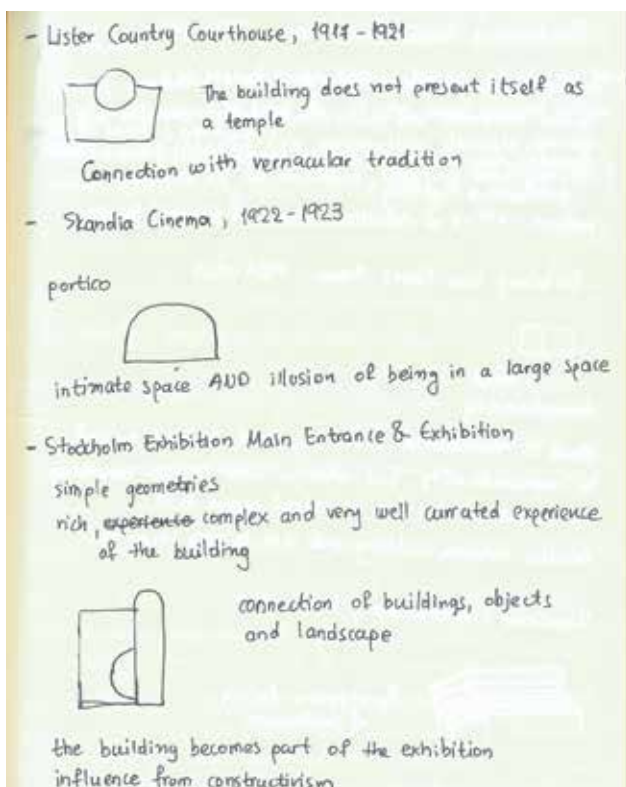 - Lister Country Courthouse, 1917 - 1921
The building does not present itself as
a temple
Connection with vernacular tradition
- Skandia Cinema, 1922 - 1923
portico
intimate space AND illusion of being in a large space
- Stockholm Exhibition Main Entrance & Exhibition
simple geometries
rich, experience complex and very well currated experience
of the building
connection of buildings, objects
and landscape
the building becomes part of the exhibition
influence from constructivism